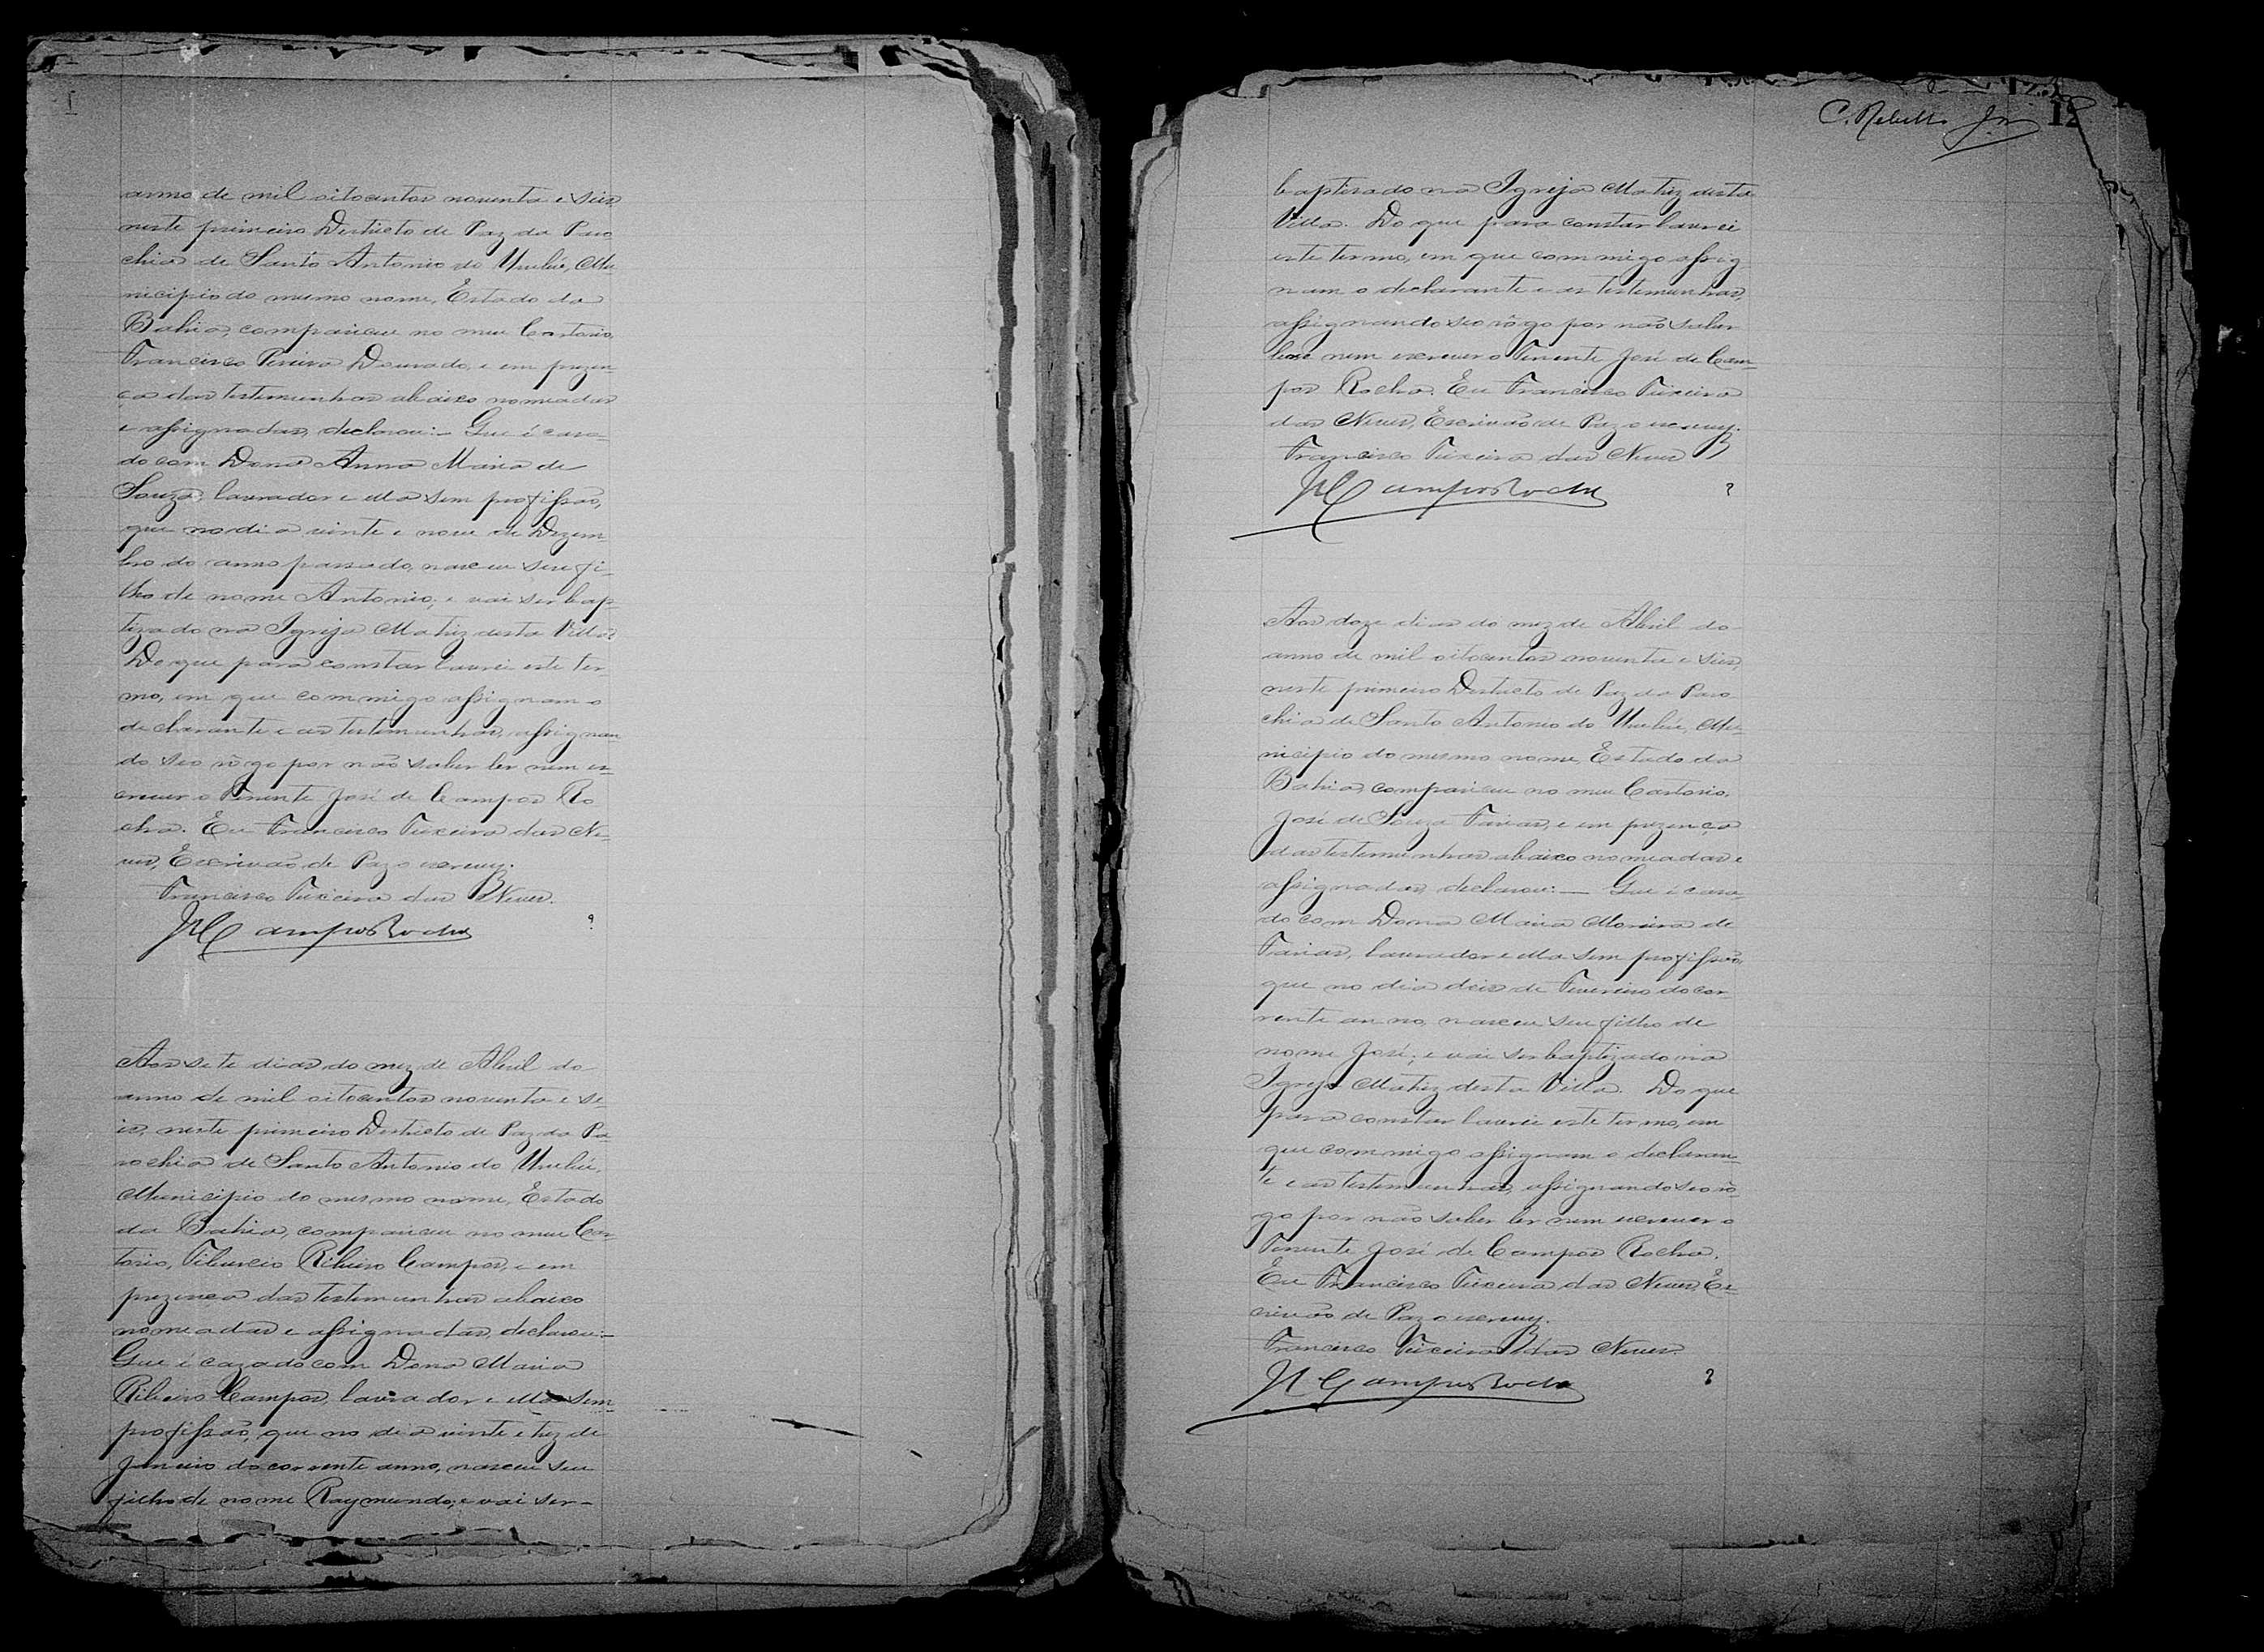 anno de mil oitocentos noventa e seis
neste primeiro Districto de Paz da Paro
chia de Santo Antonio do Urubú, Mu
nicipio do mesmo nome, Estado da
Bahia, compareceu no meu Cartorio,
Francisco Pereira Dourado, e em prezen-
ça das testemunhas abaixo nomeadas
e assignadas, declarou:- Que é casa-
do com Dona Anna Maria de
Souza, lavrador e ella sem profissão,
que no dia vinte e nove de Dezem
bro do anno passado, nasceu seu fi-
lho de nome Antonio; e vai ser bap-
tizado na Igreja Matriz desta Villa.
Do que para constar lavrei este ter-
mo, em que commigo assignam o
declarante e as testemunhas, assignan
do seo rôgo por não saber ler nem es-
crever o Tenente José de Campos Ro
cha. Eu Francisco Teixeira das Ne-
ves, Escrivão de Paz o escrevy.
Francisco Teixeira das Neves.
JCamposRocha
Aos sete dias do mez de Abril do
anno de mil oitocentos noventa e se-
is, neste primeiro Districto de Paz da Pa-
rochia de Santo Antonio do Urubú,
Municipio do mesmo nome, Estado
da Bahia, compareceu no meu Car-
torio, Tiburcio Ribeiro Campos, e em
prezença das testemunhas abaixo
nomeadas e assignadas, declarou:-
Que é cazado com Dona Maria
Ribeiro Campos, lavrador e ella sem
profissão, que no dia vinte e trez de
Janeiro do corrente anno, nasceu seu
filho de nome Raymundo; e vai ser-
C. Rebello Jr
12
baptisado na Igreja Matriz desta
Villa. Do que para constar lavrei
este termo, em que commigo assig
nam o declarante e as testemunhas,
assignando seo rôgo por não saber
ler nem escrever o Tenente José de Cam-
pos Rocha. Eu Francisco Teixeira
das Neves, Escrivão de Paz o escrevy.
Francisco Teixeira das Neves
JCamposRocha
Aos doze dias do mez de Abril do
anno de mil oitocentos noventa e seis,
neste primeiro Districto de Paz da Paro
chia de Santo Antonio do Urubú, Mu-
nicipio do mesmo nome, Estado da
Bahia, compareceu no meu Cartorio,
José de Souza Farias, e em prezença
das testemunhas abaixo nomeadas e
assignadas, declarou:- Que é casa-
do com Dona Maria Moreira de
Farias, lavrador e ella sem profissão,
que no dia dois de Fevereiro do cor-
rente anno, nasceu seu filho de
nome José; e vai ser baptizado na
Igreja Matriz desta Villa. Do que
para constar lavrei este termo, em
que commigo assignam o declaran-
te e as testemunhas, assignando seo rô-
go por não saber ler nem escrever o
Tenente José de Campos Rocha.
Eu Francisco Teixeira das Neves, Es-
crivão de Paz o escrevy.
Francisco Teixeira das Neves.
JCamposRocha